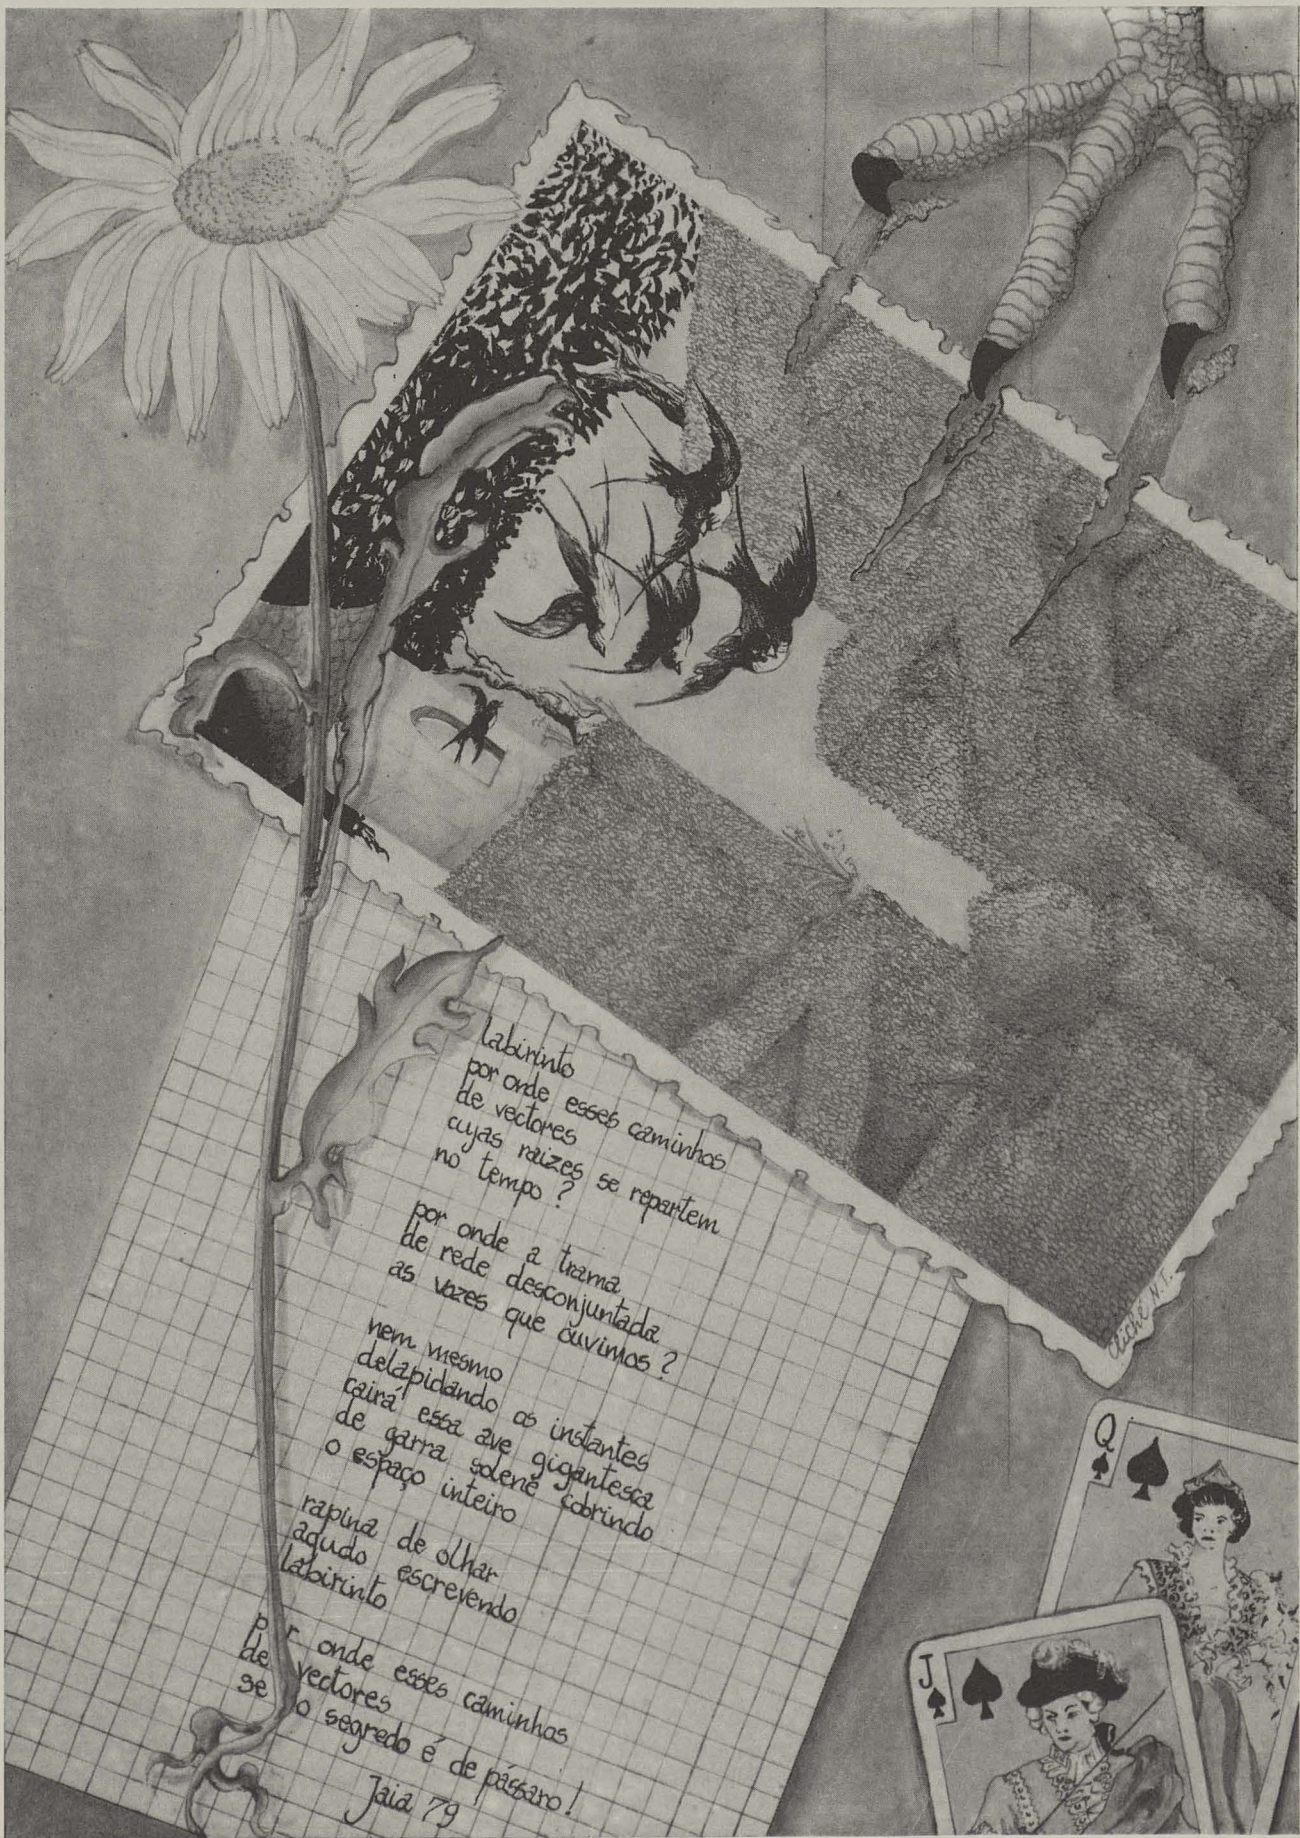 labirinto
por onde esses caminhos
de vectores
cujas raizes se repartem
no tempo ?
por onde a trama
de rede desconjuntada
as vozes que ouvimos ?
nem mesmo
delapidando os instantes
cairá essa ave gigantesca
de garra solene cobrindo
o espaço inteiro
rapina de olhar
agudo escrevendo
labirinto
por onde esses caminhos
de vectores
se o segredo é de pássaro!
Jaia 79
Cliché N.T.
Q
J